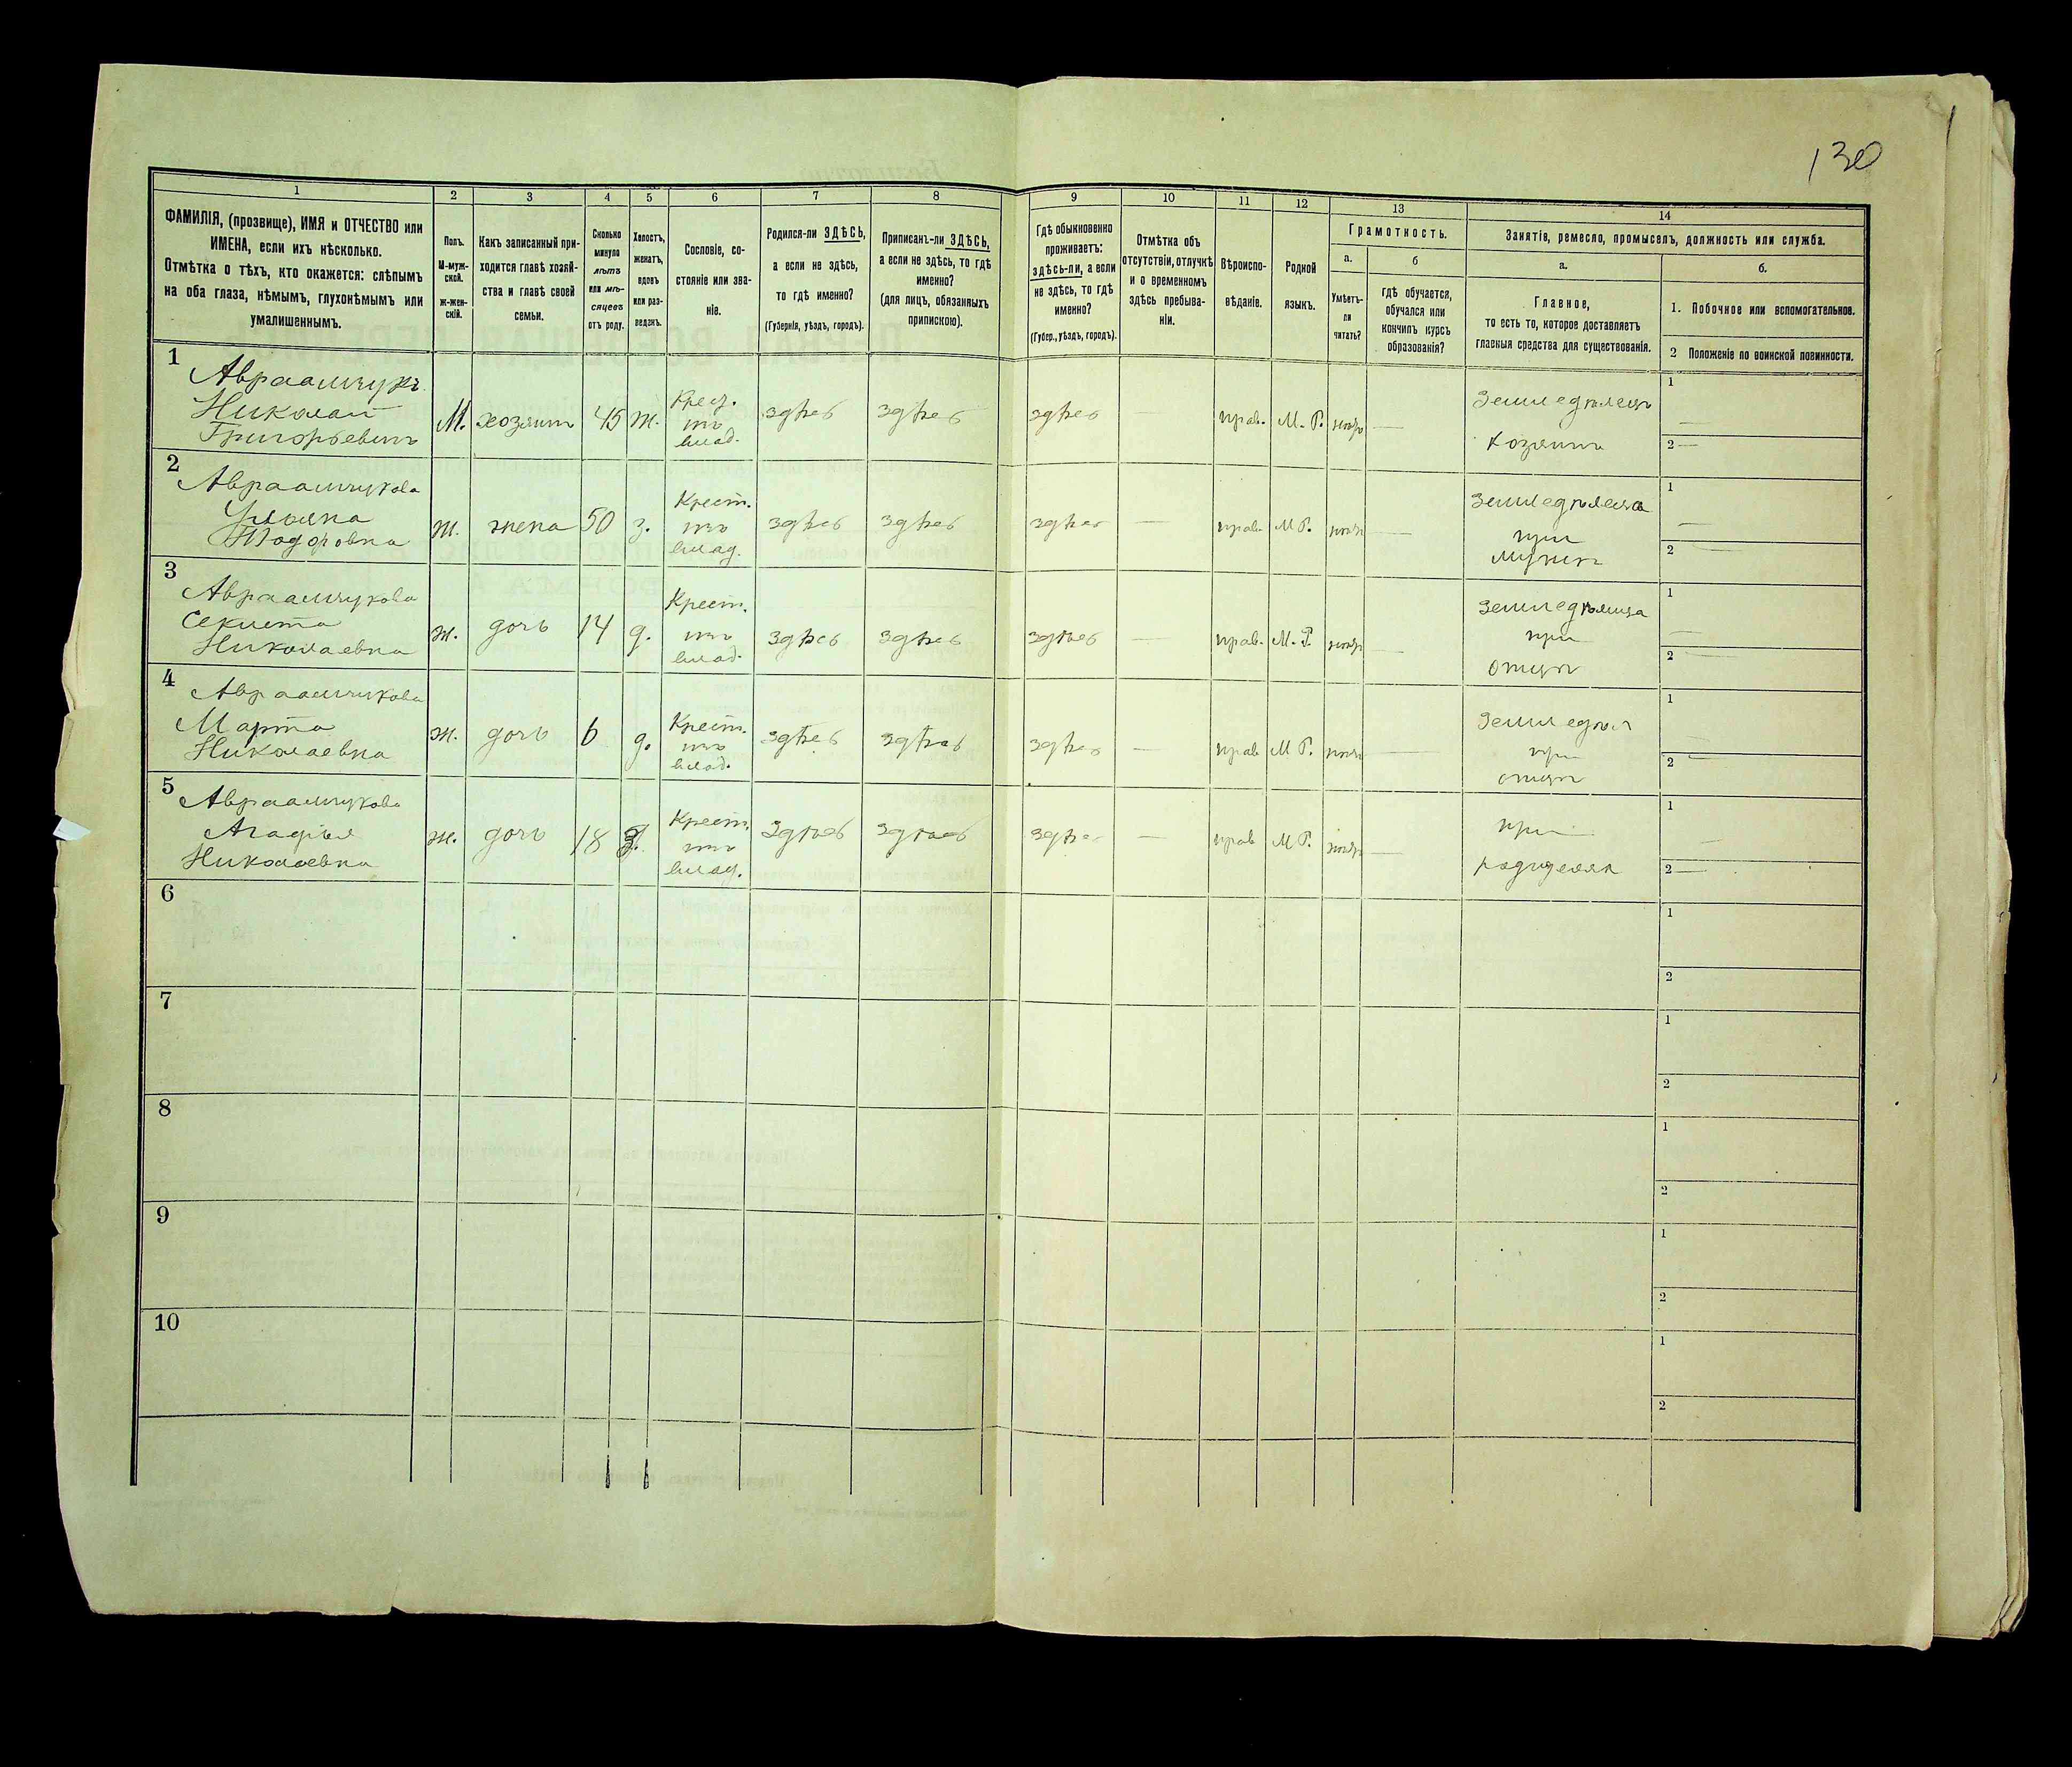 130
1
2
3
4
5
6
7
8
9
10
11
12
13
14
ФАМИЛІЯ, (прозвище), ИМЯ и ОТЧЕСТВО или
ИМЕНА, если ихъ нѣсколько.
Отмѣтка о тѣхъ, кто окажется: слѣпымъ
на оба глаза, нѣмымъ, глухонѣмымъ или
умалишеннымъ.
Полъ.
М-муж-
ской.
Ж-жен-
скій.
Какъ записанный при-
ходится главѣ хозяй-
ства и главѣ своей
семьи.
Сколько
минуло
лѣтъ
или мѣ-
сяцевъ
отъ роду.
Холостъ,
женатъ,
вдовъ
или раз-
веденъ.
Сословіе, со-
стояніе или зва-
ніе.
Родился-ли ЗДѢСЬ,
а если не здѣсь,
то гдѣ именно?
(Губернія, уѣздъ, городъ).
Приписанъ-ли ЗДѢСЬ,
а если не здѣсь, то гдѣ
именно?
(для лицъ, обязанныхъ
припискою).
Гдѣ обыкновенно
проживаетъ:
здѣсь-ли, а если
не здѣсь, то гдѣ
именно?
(Губер., уѣздъ, городъ).
Отмѣтка объ
отсутствіи, отлучкѣ
и о временномъ
здѣсь пребыва-
ніи.
Вѣроиспо-
вѣданіе.
Родной
языкъ.
Грамотность.
а.
б
Умѣетъ-
ли
читать?
гдѣ обучается,
обучался или
кончилъ курсъ
образованія?
Занятіе, ремесло, промыселъ, должность или служба.
а.
б.
Главное,
то есть то, которое доставляетъ
главныя средства для существованія.
1. Побочное или вспомогательное.
2 Положеніе по воинской повинности.
1
Авраамчукъ
Николай
Григорьевичъ
М. хозяинъ 45 ж.
изъ
влад.
здѣсь здѣсь здѣсь — прав. М. Р. —
Земледѣлецъ
хозяинъ
1 —
2 —
2
Авраамчукова
Ульяна
Тодоровна
ж. жена 50 з.
Крест.
изъ
влад.
здѣсь здѣсь здѣсь — прав. М Р. —
Земледѣлица
при
мужѣ
1 —
2 —
3
Авраамчукова
Секлета
Николаевна
ж. дочь 14 д.
Крест.
изъ
влад.
здѣсь здѣсь здѣсь — прав. М. Р. —
Земледѣлица
при
отцѣ
1 —
2 —
4
Авраамчукова
Марта
Николаевна
ж. дочь 6 д.
Крест.
изъ
влад.
здѣсь здѣсь здѣсь — прав М Р. —
при
отцѣ
1 —
2 —
5
Авраамчукова
Агафья
Николаевна
ж. дочь 18
Крест.
изъ
влад.
здѣсь здѣсь здѣсь — прав М Р. —
при
1 —
2 —
6
1
2
7
1
2
8
1
2
9
1
2
10
1
2